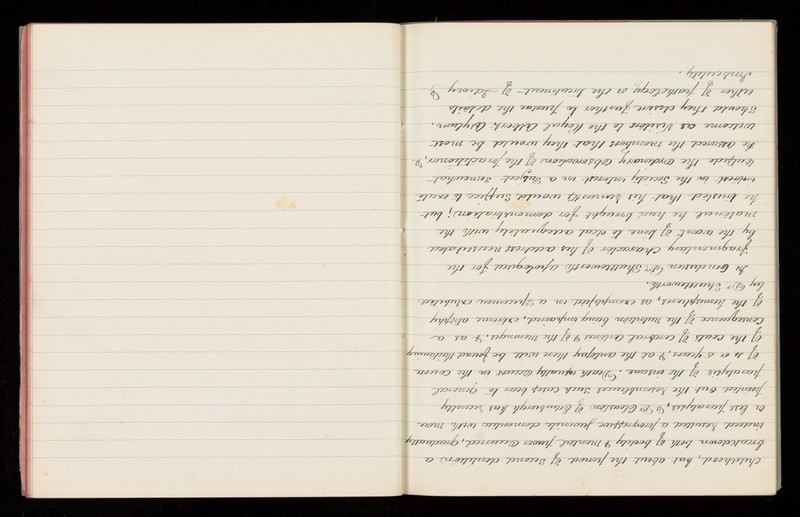 childhood, but about the period of second dentition a
breakdown both of bodily & mental power occurred, gradually
indeed resulted a progressive juvenile dementia with more
or less paralysis, & Dr. Clouston of Edinburgh has recently
pointed out the resemblances such cases bear to general
paralysis of the insane. Death usually occurs in the course
of 4 or 5 years, & at the autopsy there will be found thickening
of the coats of cerebral arteries & of the meninges, & as a
consequence of the nutrition being impaired, extreme atrophy
of the hemispheres, as exemplified in a specimen exhibited
by Dr. Shuttleworth.
In conclusion Dr. Shuttleworth apologised for the
fragmentary character of his address necessitated
by the want of time to deal adequately with the
material he had brought for demonstration; but
he trusted that his remarks would suffice to excite
interest in the Society interest in a subject somewhat
outside the ordinary observation of the practitioner, &
he assured the members that they would be most
welcome as visitors to the Royal Albert Asylum.
should they desire further to pursue the details
either of pathology, or the treatment of Idiocy &
Imbecility.